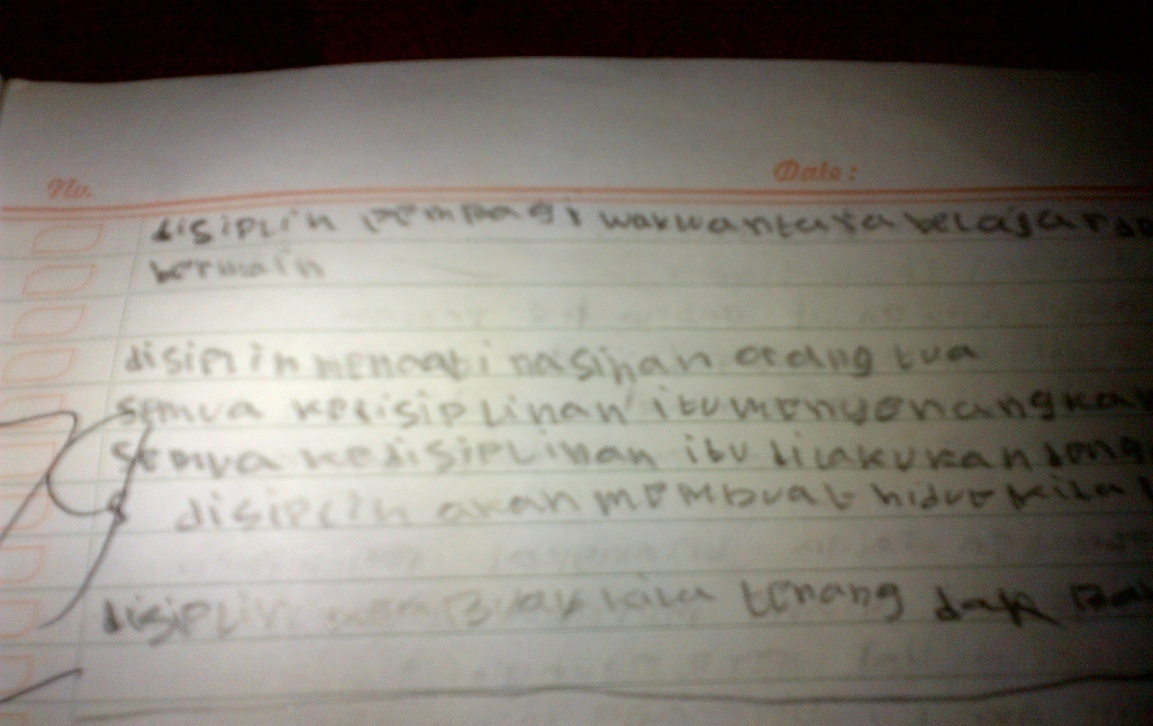 No. Date:
disiplin pempagi waktu antara belajar da
bermain
disiplin menaati nasihan orang tua
semua kedisiplinan itu menyenangkan
semua kedisiplinan itu dilakukan deng
disiplin akan membuat hidup kita
disiplin kita tenang dak Ba